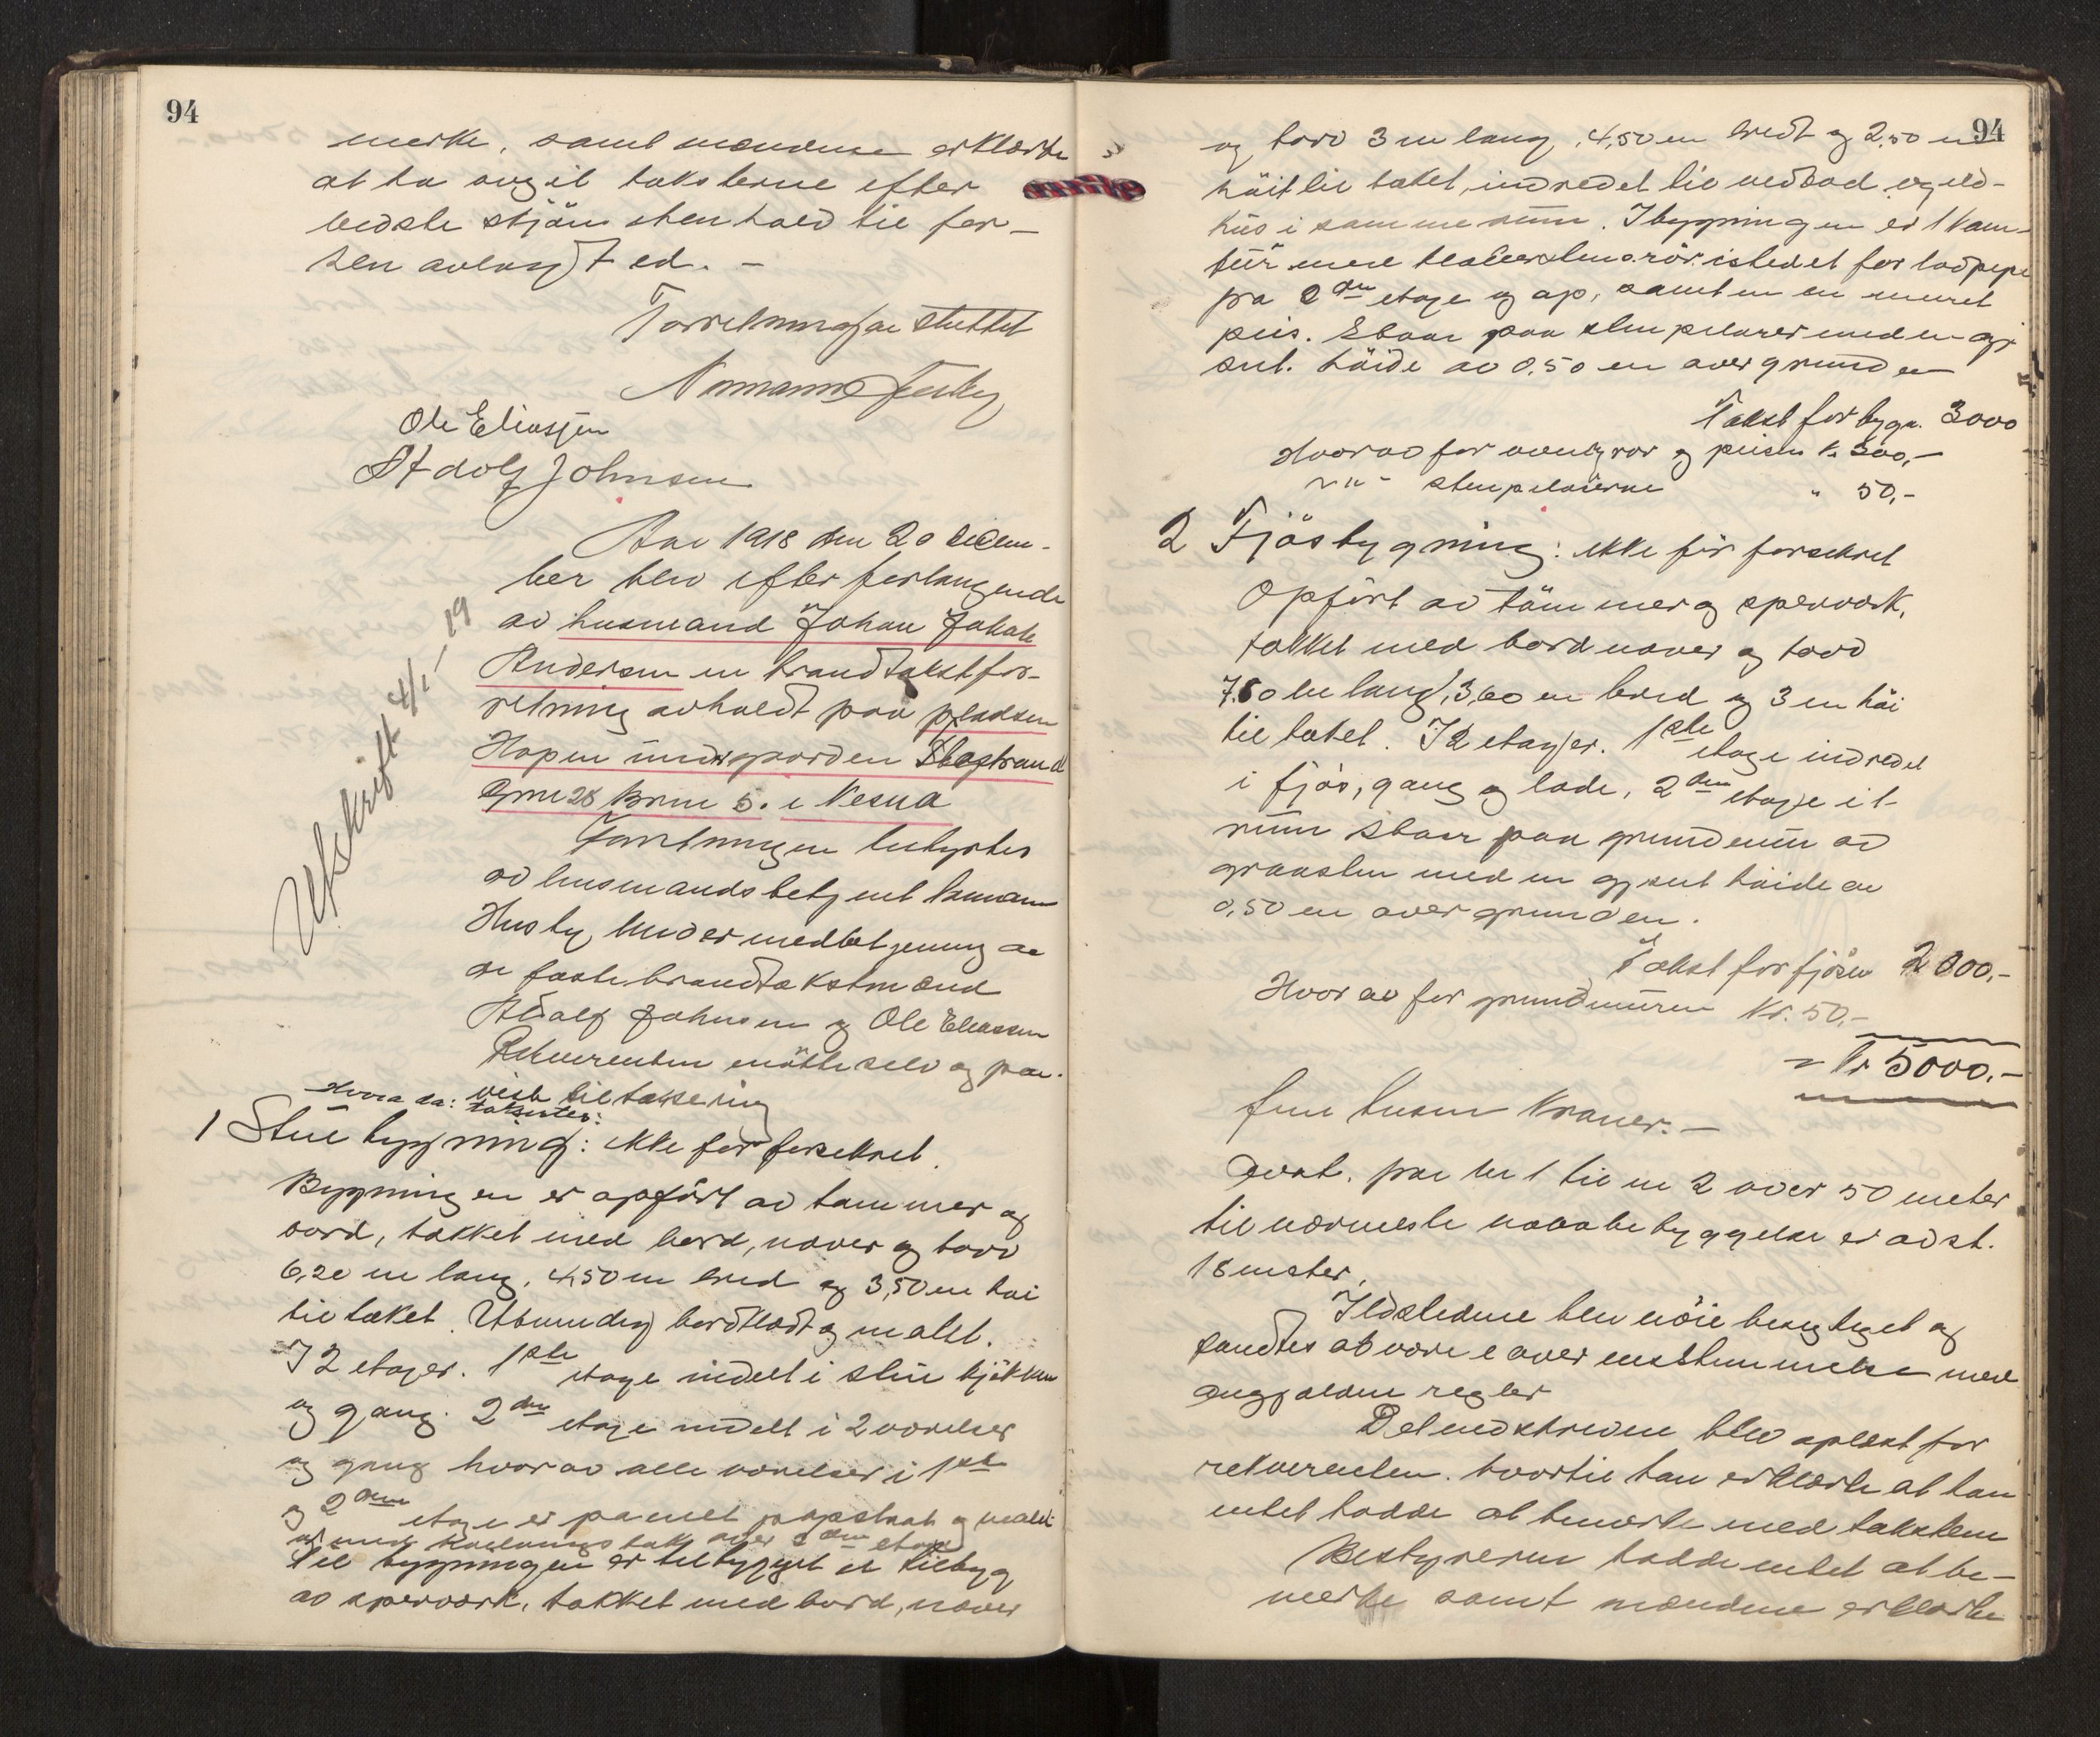 94
merke, samt mændene erklærte
at ha avgit taksterne efter
bedste skjön i henhold til før-
hen avlagt ed. -
Forretningen sluttet
Normann Husby
Ole Eliassen
Adolf Johnsen
Utskrift 4/1 - 19
Aar 1918 den 20 decem-
ber blev efter forlangende
av husmand Johan Jakob
Andersen en brandtakstfor-
retning avholdt paa pladsen
Hopen under gaarden Stagstrand
Gnr 28 Brnr 5. i Nesna
Forretningen bestyrtes
av lensmandsbetjent Normann
Husby, under medbetjening av
de faste brandtakstmænd
Adolf Johnsen og Ole Eliassen
Rekvirenten mötte selv og paa-
viste til taksering
Hvorda: taksertes:
1 Stuebygning: ikke før forsekret.
Bygningen er opfört av tømmer og
bord, tækket med bord, næver og torv
6,20 m lang, 4,50 m bred og 3,50 m høi
til taket. Utvendig bordklædt og malt.
I 2 etager. 1ste etage indelt i stue kjøkken
og gang. 2den etage indelt i 2 værelser
og gang hvorav alle værelser i 1ste
og 2den etage er panelt papstrat og malt
Til bygningen er tilbygget et tilbyg
av spærværk, tækket med bord, næver
94
og torv 3 m lang, 4,50 m bredt og 2,50 m
höit til taket, indredet til vedbod og eld-
hus i samme rum. I bygningen er 1 kam-
fra 2den etage og op, samt en muret
peis. Staar paa stenpilarer med en gj-
snt. höide av 0,50 m over grunden
Takst for bygn. 3000
Hvorav for og peisen kr. 300,-
- " - stenpilarerne " 50,-
2 Fjösbygning: ikke før forsekret
Opfört av tömmer og spærværk,
tækket med bord næver og torv
7.80 m lang, 3,60 m bred og 3 m høi
til taket. I 2 etager. 1ste etage indredet
i fjös, gang og lade, 2den etage i et
rum Staar paa grundmur av
graasten med en gjsnt höide av
0,50 m over grunden.
Takst for fjösen 2000,-
Hvorav for grundmuren Kr. 50,-
= Kr 5000.-
fem tusen Kroner. -
Avst. fra nr 1 til nr 2 over 50 meter
til nærmeste nabobebyggelse er avst.
18 meter.
Ildstederne blev nöie besigtiget og
fandtes at være i overensstemmelse med
angjældene regler
Det nedskrevne blev oplæst for
rekvirenten. hvortil han erklærte at han
intet hadde at bemerke med taksten
Bestyreren hadde intet at be-
merke samt mændene erklærte